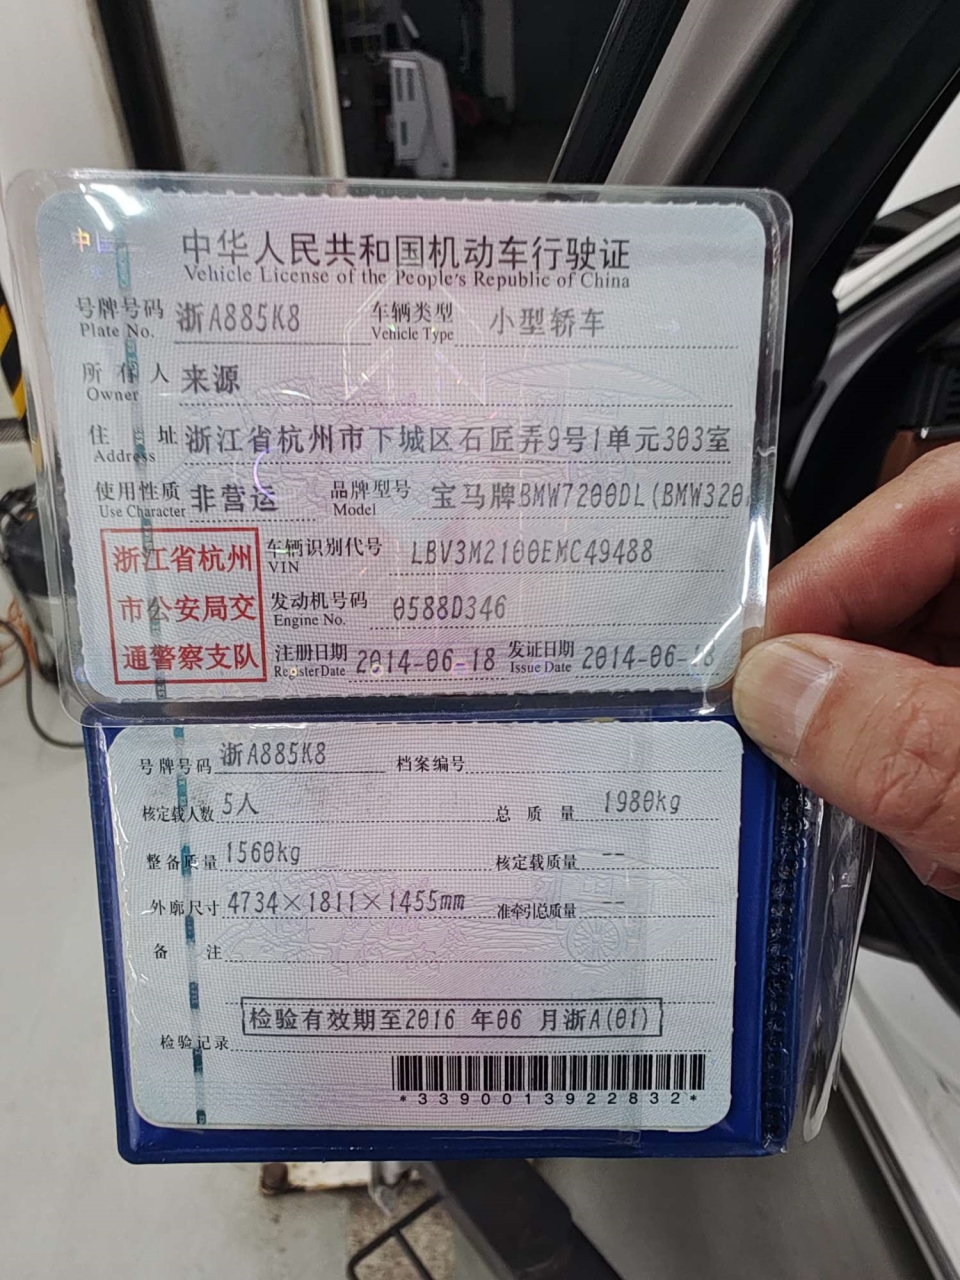 中华人民共和国机动车行驶证
Vehicle License of the People's Republic of China
号牌号码 浙A885K8 车辆类型 小型轿车
Plate No. Vehicle Type
所有人 来源
Owner
住址 浙江省杭州市下城区石匠弄9号1单元303室
Address
使用性质 非营运 品牌型号 宝马牌BMW7200DL(BMW320
Use Character Model
浙江省杭州
市公安局交
通警察支队
车辆识别代号 LBV3M2100EMC49488
VIN
发动机号码 0588D346
Engine No.
注册日期 2014-06-18 发证日期 2014-06-18
Register Date Issue Date
号牌号码 浙A885K8 档案编号
核定载人数 5人 总质量 1980kg
整备质量 1560kg 核定载质量 --
外廓尺寸 4734×1811×1455mm 准牵引总质量 --
备注
检验有效期至2016 年06 月浙A(01)
检验记录
*3390013922832*